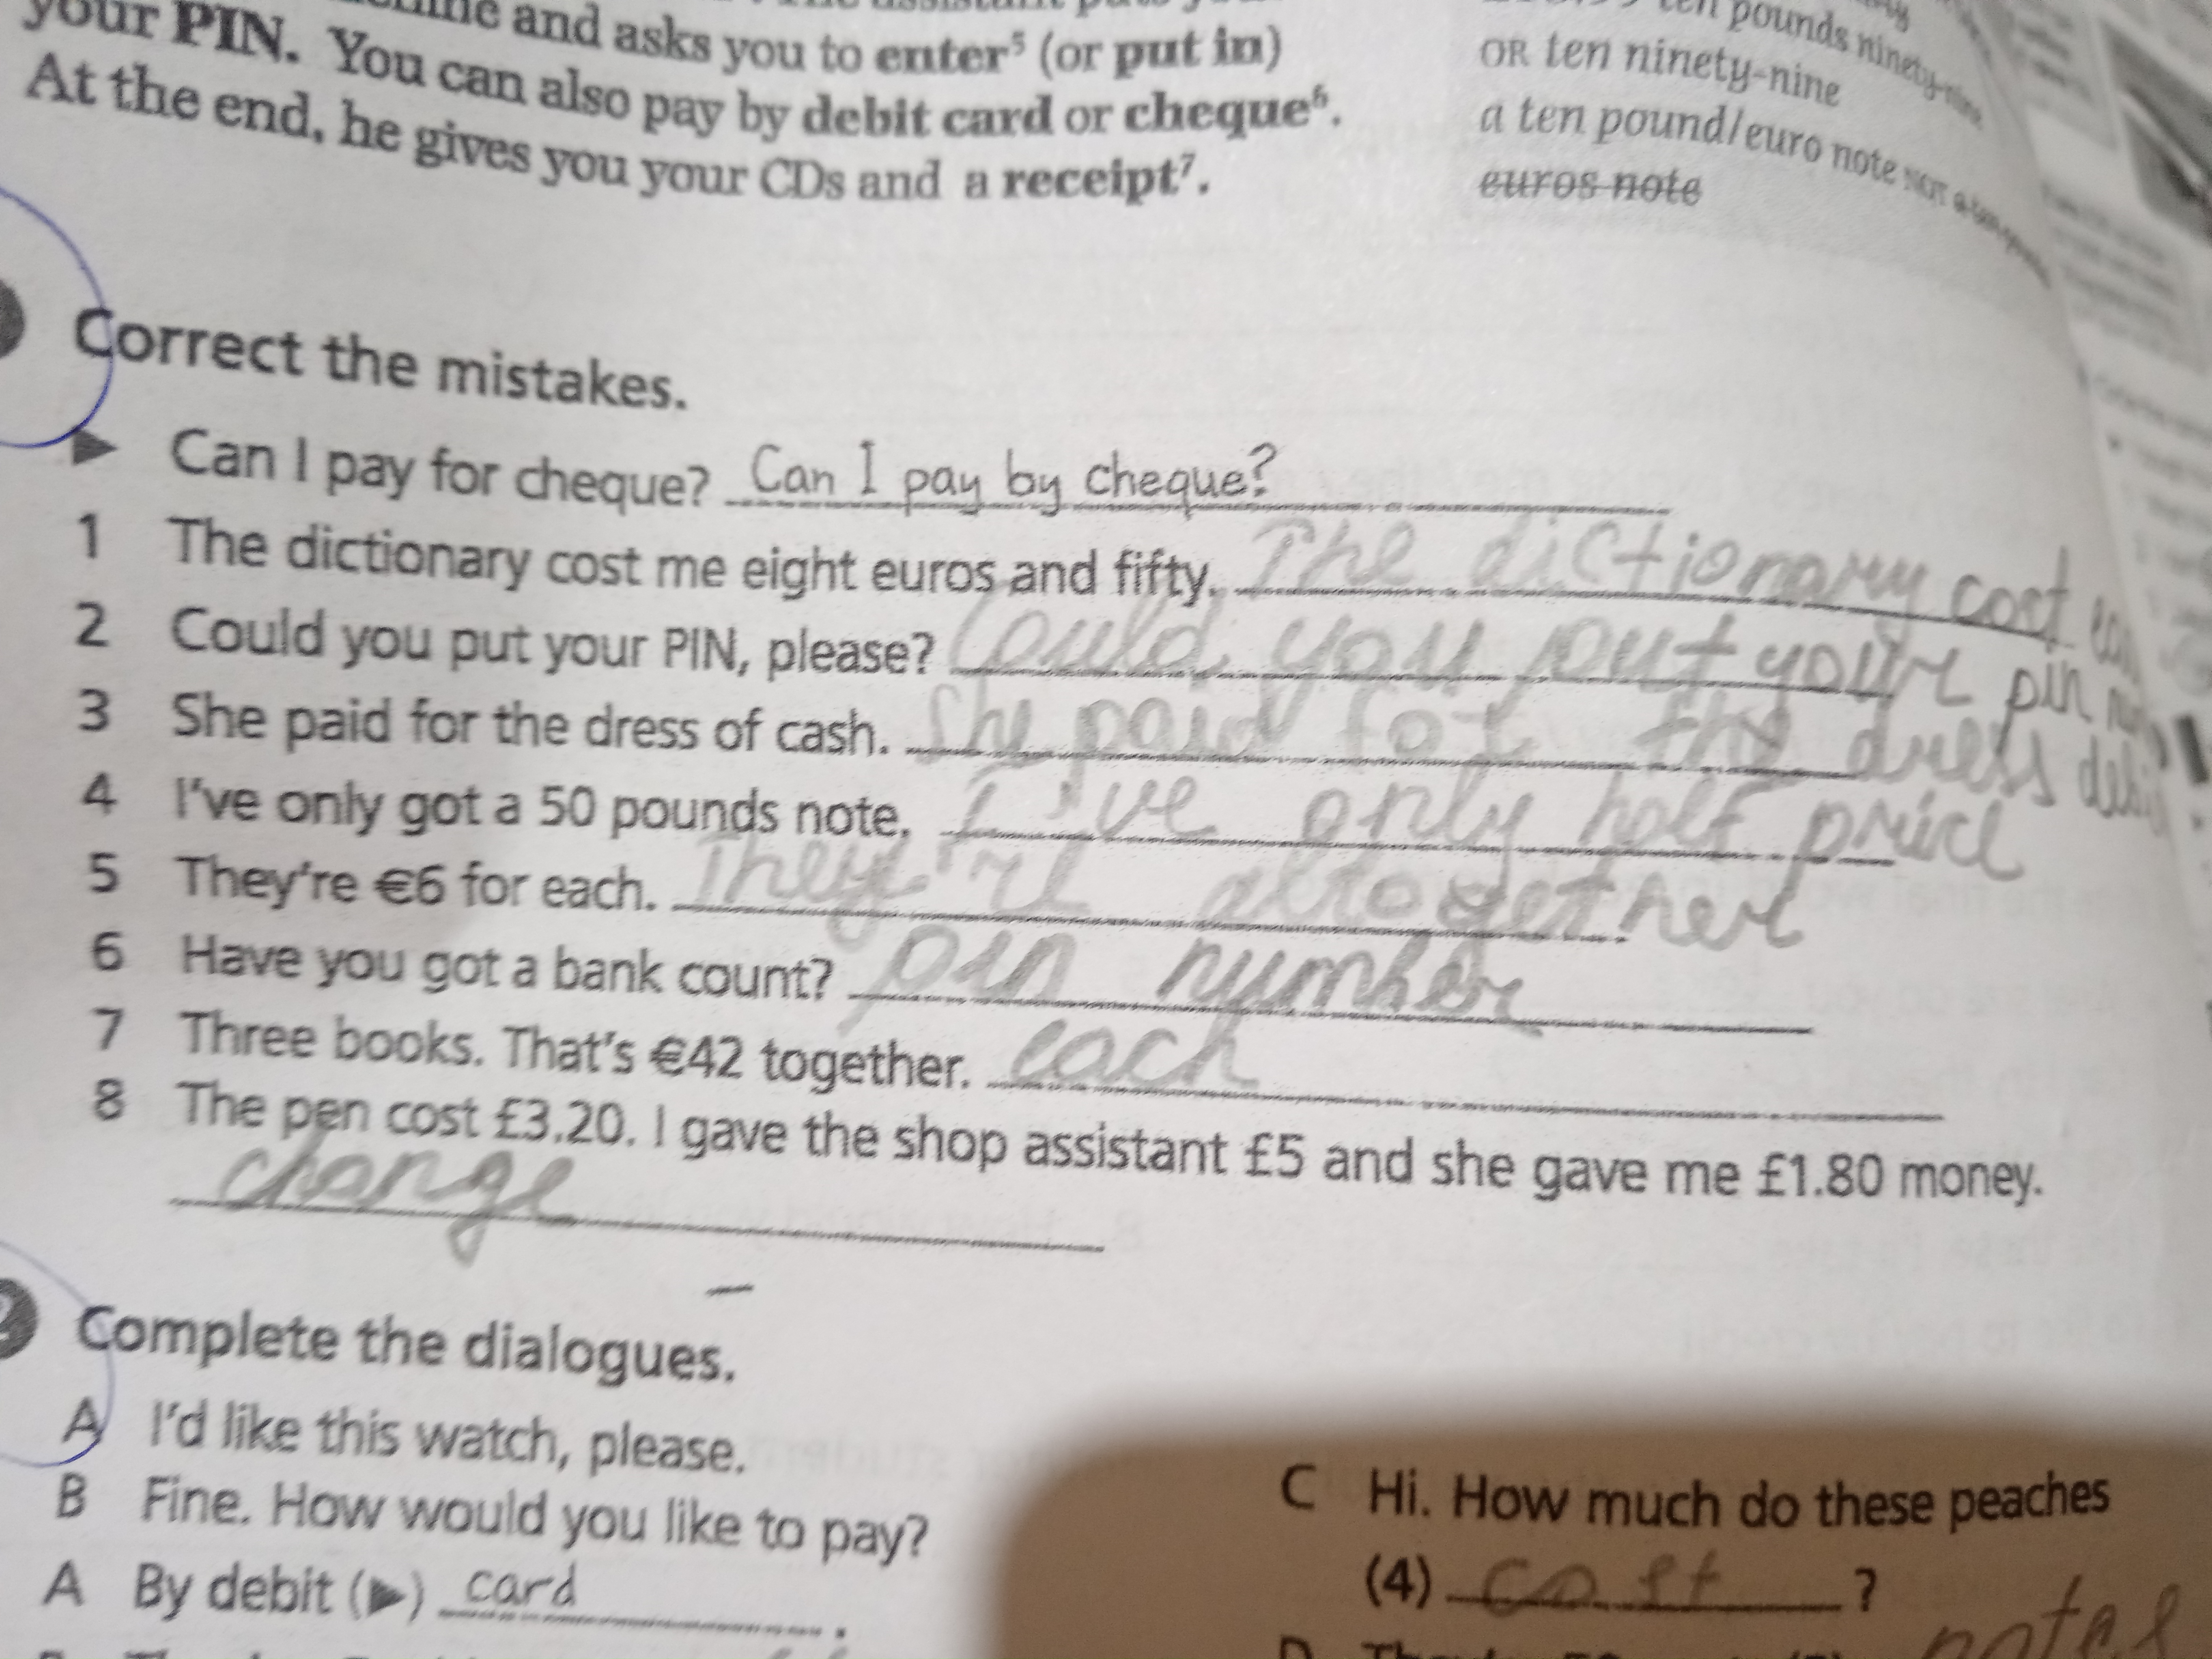 and asks you to enter⁵ (or put in)
your PIN. You can also pay by debit card or cheque⁶.
At the end, he gives you your CDs and a receipt⁷.
ten pounds ninety-nine
OR ten ninety-nine
a ten pound/euro note NOT a ten
euros note
Correct the mistakes.
▶ Can I pay for cheque? Can I pay by cheque?
1 The dictionary cost me eight euros and fifty. The dictionary cost
2 Could you put your PIN, please? Could you put your pin
3 She paid for the dress of cash. She paid for the dress
4 I've only got a 50 pounds note. I've only half price
5 They're €6 for each. They're altogether
6 Have you got a bank count? pin number
7 Three books. That's €42 together. each
8 The pen cost £3.20. I gave the shop assistant £5 and she gave me £1.80 money.
change
Complete the dialogues.
A I'd like this watch, please.
B Fine. How would you like to pay?
A By debit (▶) card.
C Hi. How much do these peaches
(4) cost ?
notes